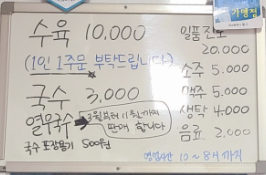 수육 10,000
(1인 1주문 부탁드립니다)
국수 3,000
열무국수
3월부터 11월까지
판매 합니다
국수 포장용기 500원
일품진로
20,000
소주 5,000
맥주 5,000
생탁 4,000
음료 2,000
영업시간 10~8시까지
가맹점